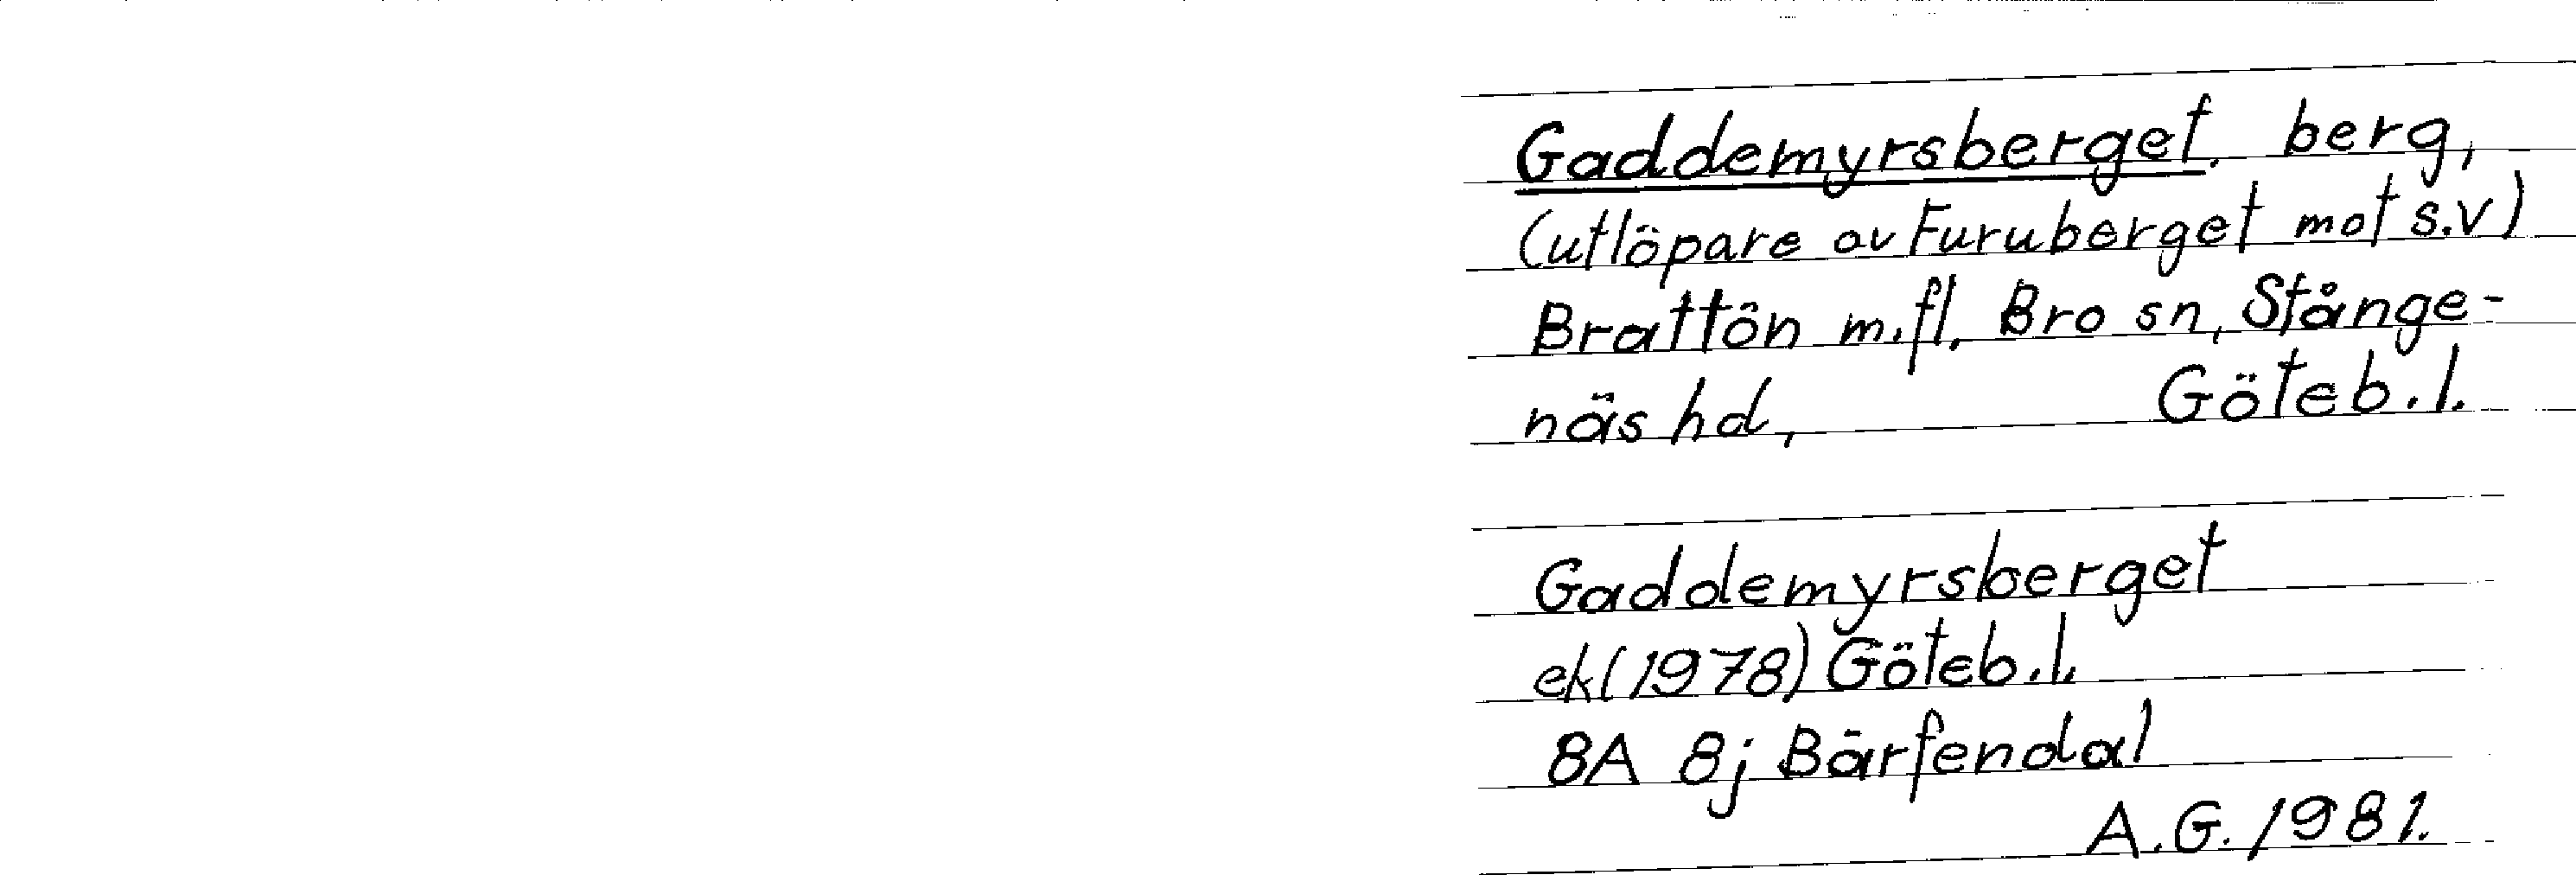 Gaddemyrsberget. berg,
(utlöpare av Furuberget mot s.v)
Brattön m.fl. Bro sn, Stånge-
näs hd, Göteb.l.
Gaddemyrsberget
ek(1978) Göteb.l.
8A 8j Bärfendal
A.G. 1981.